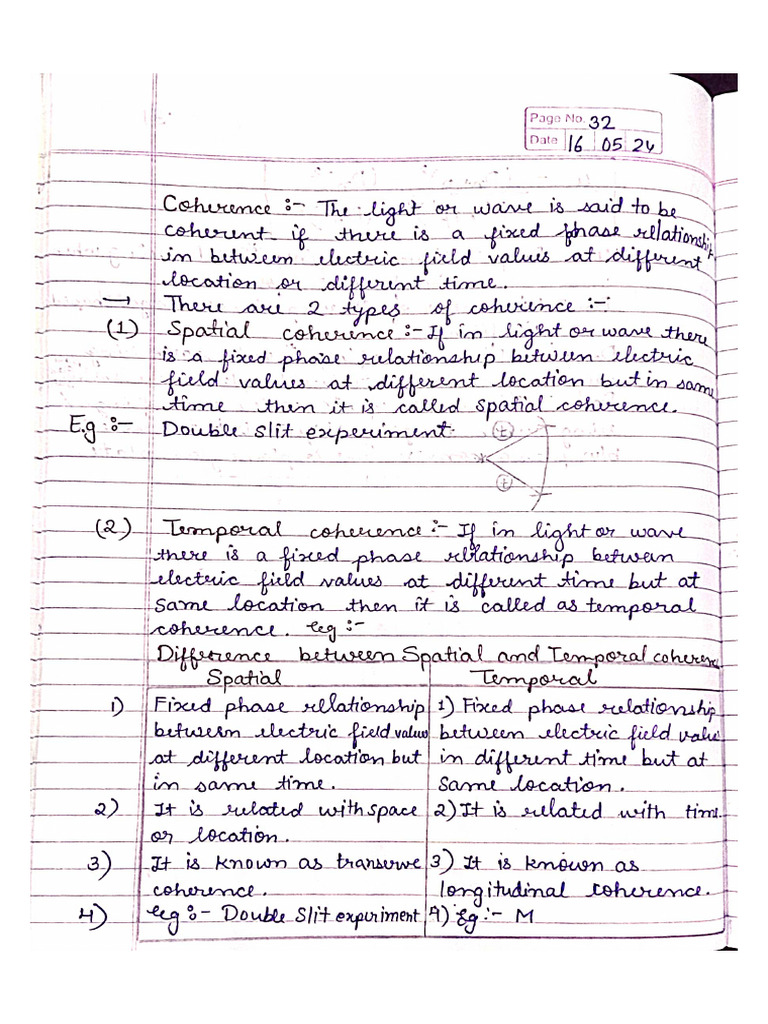 Page No. 32
Date 16 05 24
Coherence :- The light or wave is said to be
coherent if there is a fixed phase relationship
in between electric field values at different
location or different time.
→ There are 2 types of coherence :-
(1) Spatial coherence :- If in light or wave there
is a fixed phase relationship between electric
field values at different location but in same
time then it is called spatial coherence.
E.g :- Double slit experiment
t
t
(2) Temporal coherence :- If in light or wave
there is a fixed phase relationship between
electric field values at different time but at
same location then it is called as temporal
coherence. eg :-
Difference between Spatial and Temporal coherence
Spatial Temporal
1) Fixed phase relationship 1) Fixed phase relationship
between electric field value between electric field value
at different location but in different time but at
in same time. same location.
2) It is related with space 2) It is related with time
or location.
3) It is known as transerve 3) It is known as
coherence. longitudinal coherence.
4) eg :- Double slit experiment 4) Eg :- M